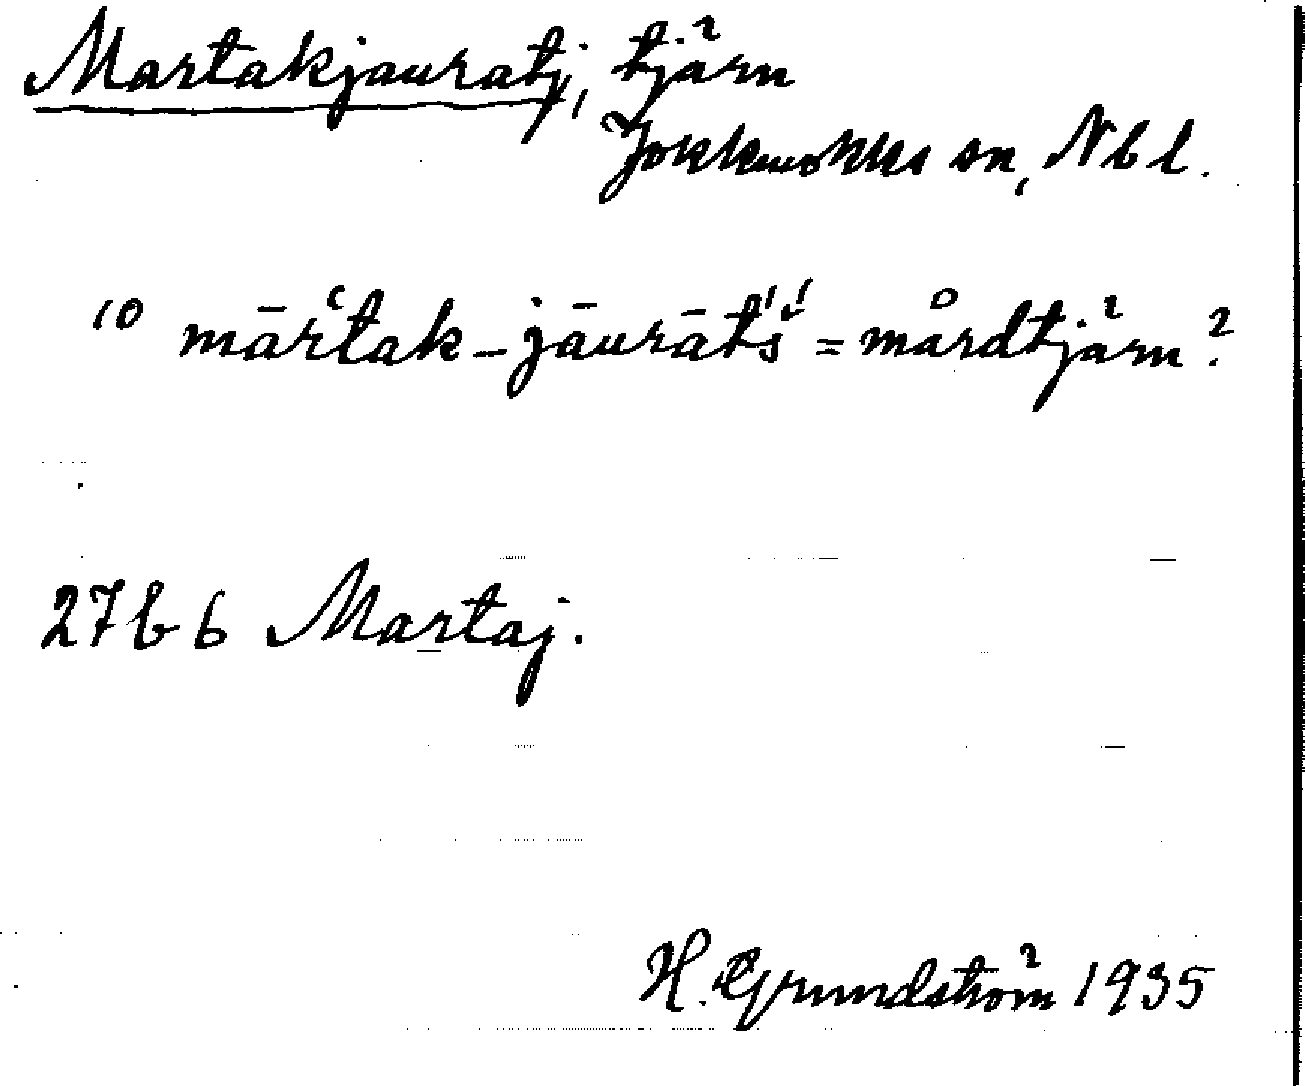 Martakjauratj, tjärn
Jokkmokks sn, Nbl.
10 mārʿtak-jāurāt́ś = mårdtjärn?
27 b 6 Martaj.
H. Grundström 1935